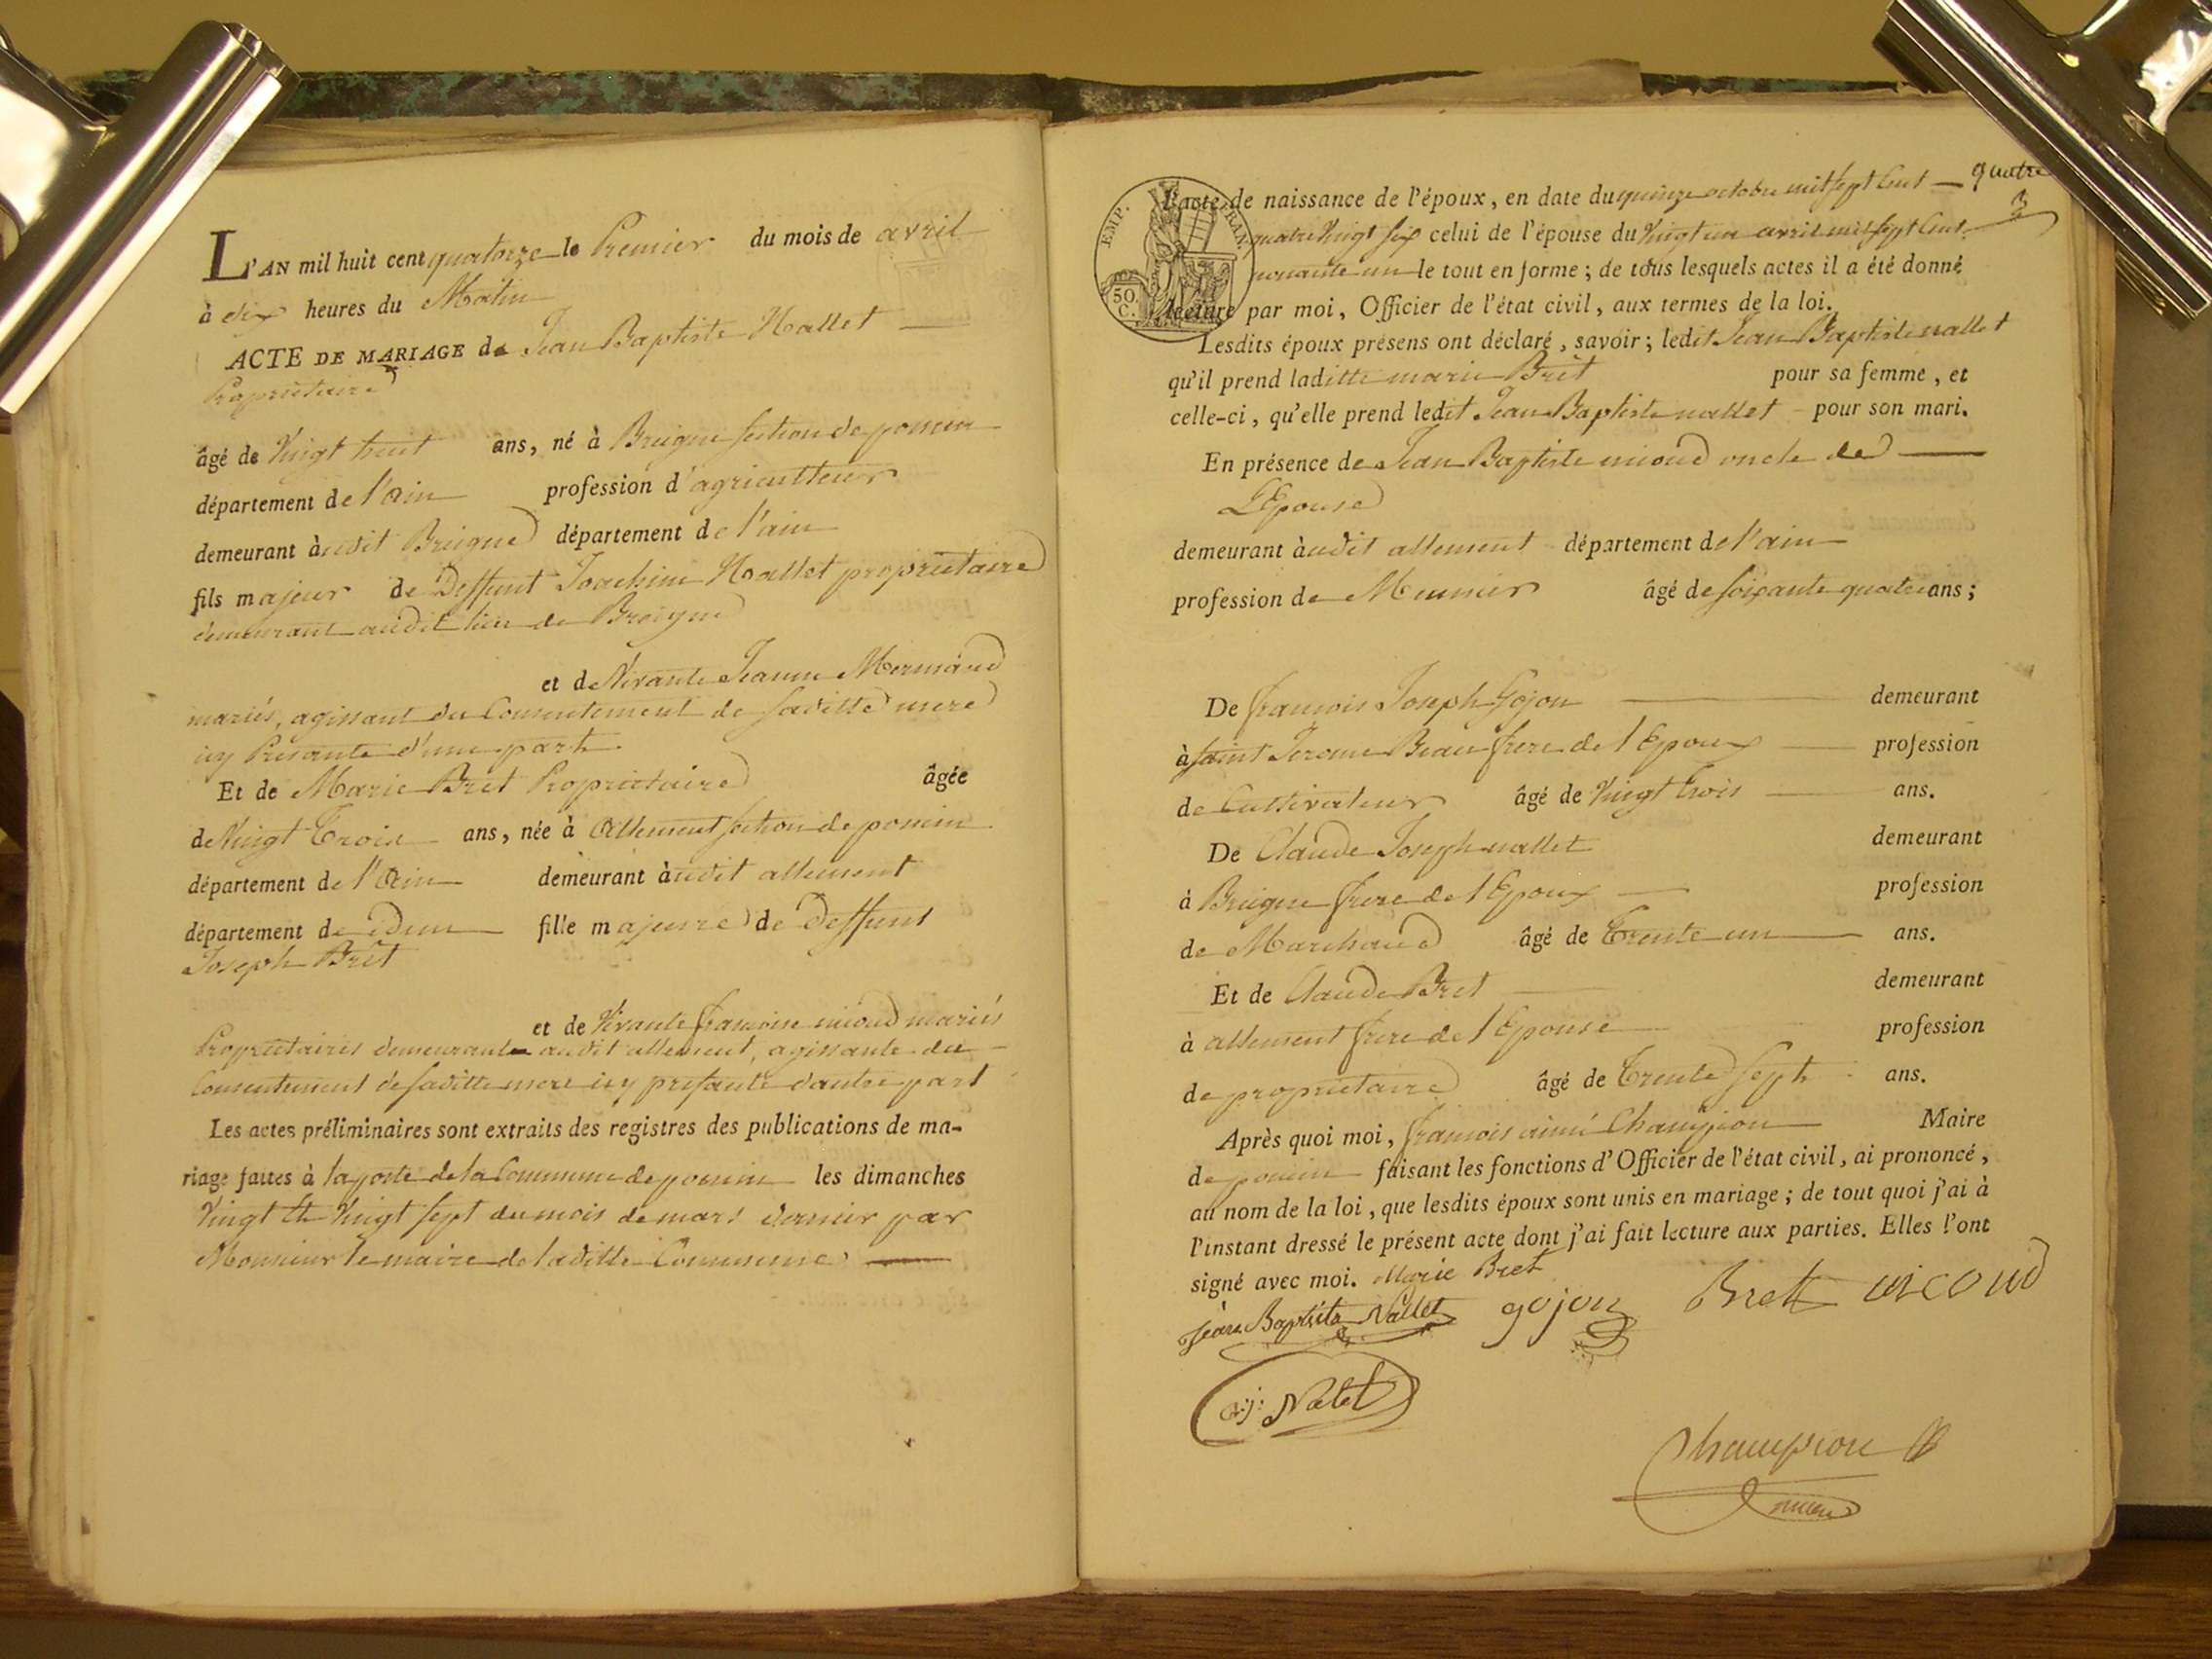 L'AN mil huit cent quatorze le Premier du mois de avril
à dix heures du Matin
ACTE DE MARIAGE de Jean Baptiste Nallet
Propriétaire
âgé de Vingt huit ans, né à Breigne section de poncin
département de l'ain profession d'agriculteur
demeurant àudit Breigne département de l'ain
fils majeur de Deffunt Joachim Nallet propriétaire
demeurant audit lieu de Breigne
et de Vivante Jeanne Mermand
mariés, agissant du Consentement de saditte mere
icy Presante d'une part
Et de Marie Bret Propriétaire âgée
de Vingt Trois ans, née à Allement section de poncin
département de l'Ain demeurant àudit allement
département de Dun fille majeure de Deffunt
Joseph Brêt
et de Vivante francoise nicoud mariés
Propriétaires demeurants audit allement, agissante du
Consentement de saditte mere icy presante d'autre part
Les actes préliminaires sont extraits des registres des publications de ma-
riage faites à la porte de la Commune de poncin les dimanches
Vingt et Vingt sept du mois de mars dernier par
Monsieur le maire de laditte Commune
quatre
3
EMP. FRAN.
50. C.
L'acte de naissance de l'époux, en date du quinze octobre mil sept Cent
quatre Vingt six celui de l'épouse du Vingt un avril mil sept Cent
nonante un le tout en forme; de tous lesquels actes il a été donné
lecture par moi, Officier de l'état civil, aux termes de la loi.
Lesdits époux présens ont déclaré, savoir; ledit Jean Baptiste nallet
qu'il prend laditte marie Brêt pour sa femme, et
celle-ci, qu'elle prend ledit Jean Baptiste nallet pour son mari.
En présence de Jean Baptiste nicoud oncle de
L'Epouse
demeurant àudit allement département de l'ain
profession de Meunier âgé de soixante quatre ans;
De francois Joseph Gojon demeurant
à saint Jerome Beau frere de l'Epoux profession
de Cultivateur âgé de Vingt trois ans.
De Claude Joseph nallet demeurant
à Breigne frere de l'Epoux profession
de Marchand âgé de Trente un ans.
Et de Claude Bret demeurant
à allement frere de l'Epouse profession
de propriétaire âgé de Trente Sept ans.
Après quoi moi, francois aimé Champion Maire
de poncin faisant les fonctions d'Officier de l'état civil, ai prononcé,
au nom de la loi, que lesdits époux sont unis en mariage; de tout quoi j'ai à
l'instant dressé le présent acte dont j'ai fait lecture aux parties. Elles l'ont
signé avec moi. Marie Bret
Jean Baptiste Nallet gojon Brett nicoud
Nalet
Champion
maire